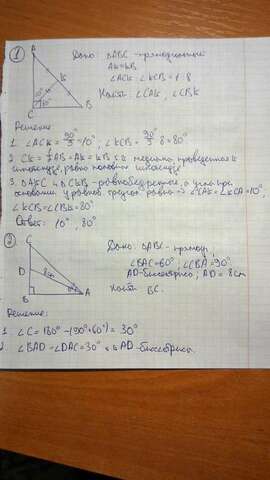 1
A
K
C
B
Дано: △ABC - прямоугольный
AK=KB
∠ACK, ∠KCB = 1:8
Найти: ∠CAK, ∠CBK
Решение
1. ∠ACK = 90°/9 = 10°; ∠KCB = 90°/9 · 8 = 80°
2. CK = ½AB = AK = KB т.к. медиана проведенная к
гипотенузе, равна половине гипотенузе
3. △AKC и △CKB - равнобедренные, а углы при
основании у равноб. треуг. равны ⇒ ∠CAK = ∠KCA = 10°,
∠KCB = ∠CBK = 80°
Ответ: 10°, 80°
2
C
D
B
A
8см
Дано: △ABC - прямоуг.
∠BAC = 60°, ∠CBA = 90°
AD - биссектриса; AD = 8см
Найти: BC.
Решение:
1. ∠C = 180° - (90°+60°) = 30°
2. ∠BAD = ∠DAC = 30° AD - биссектриса